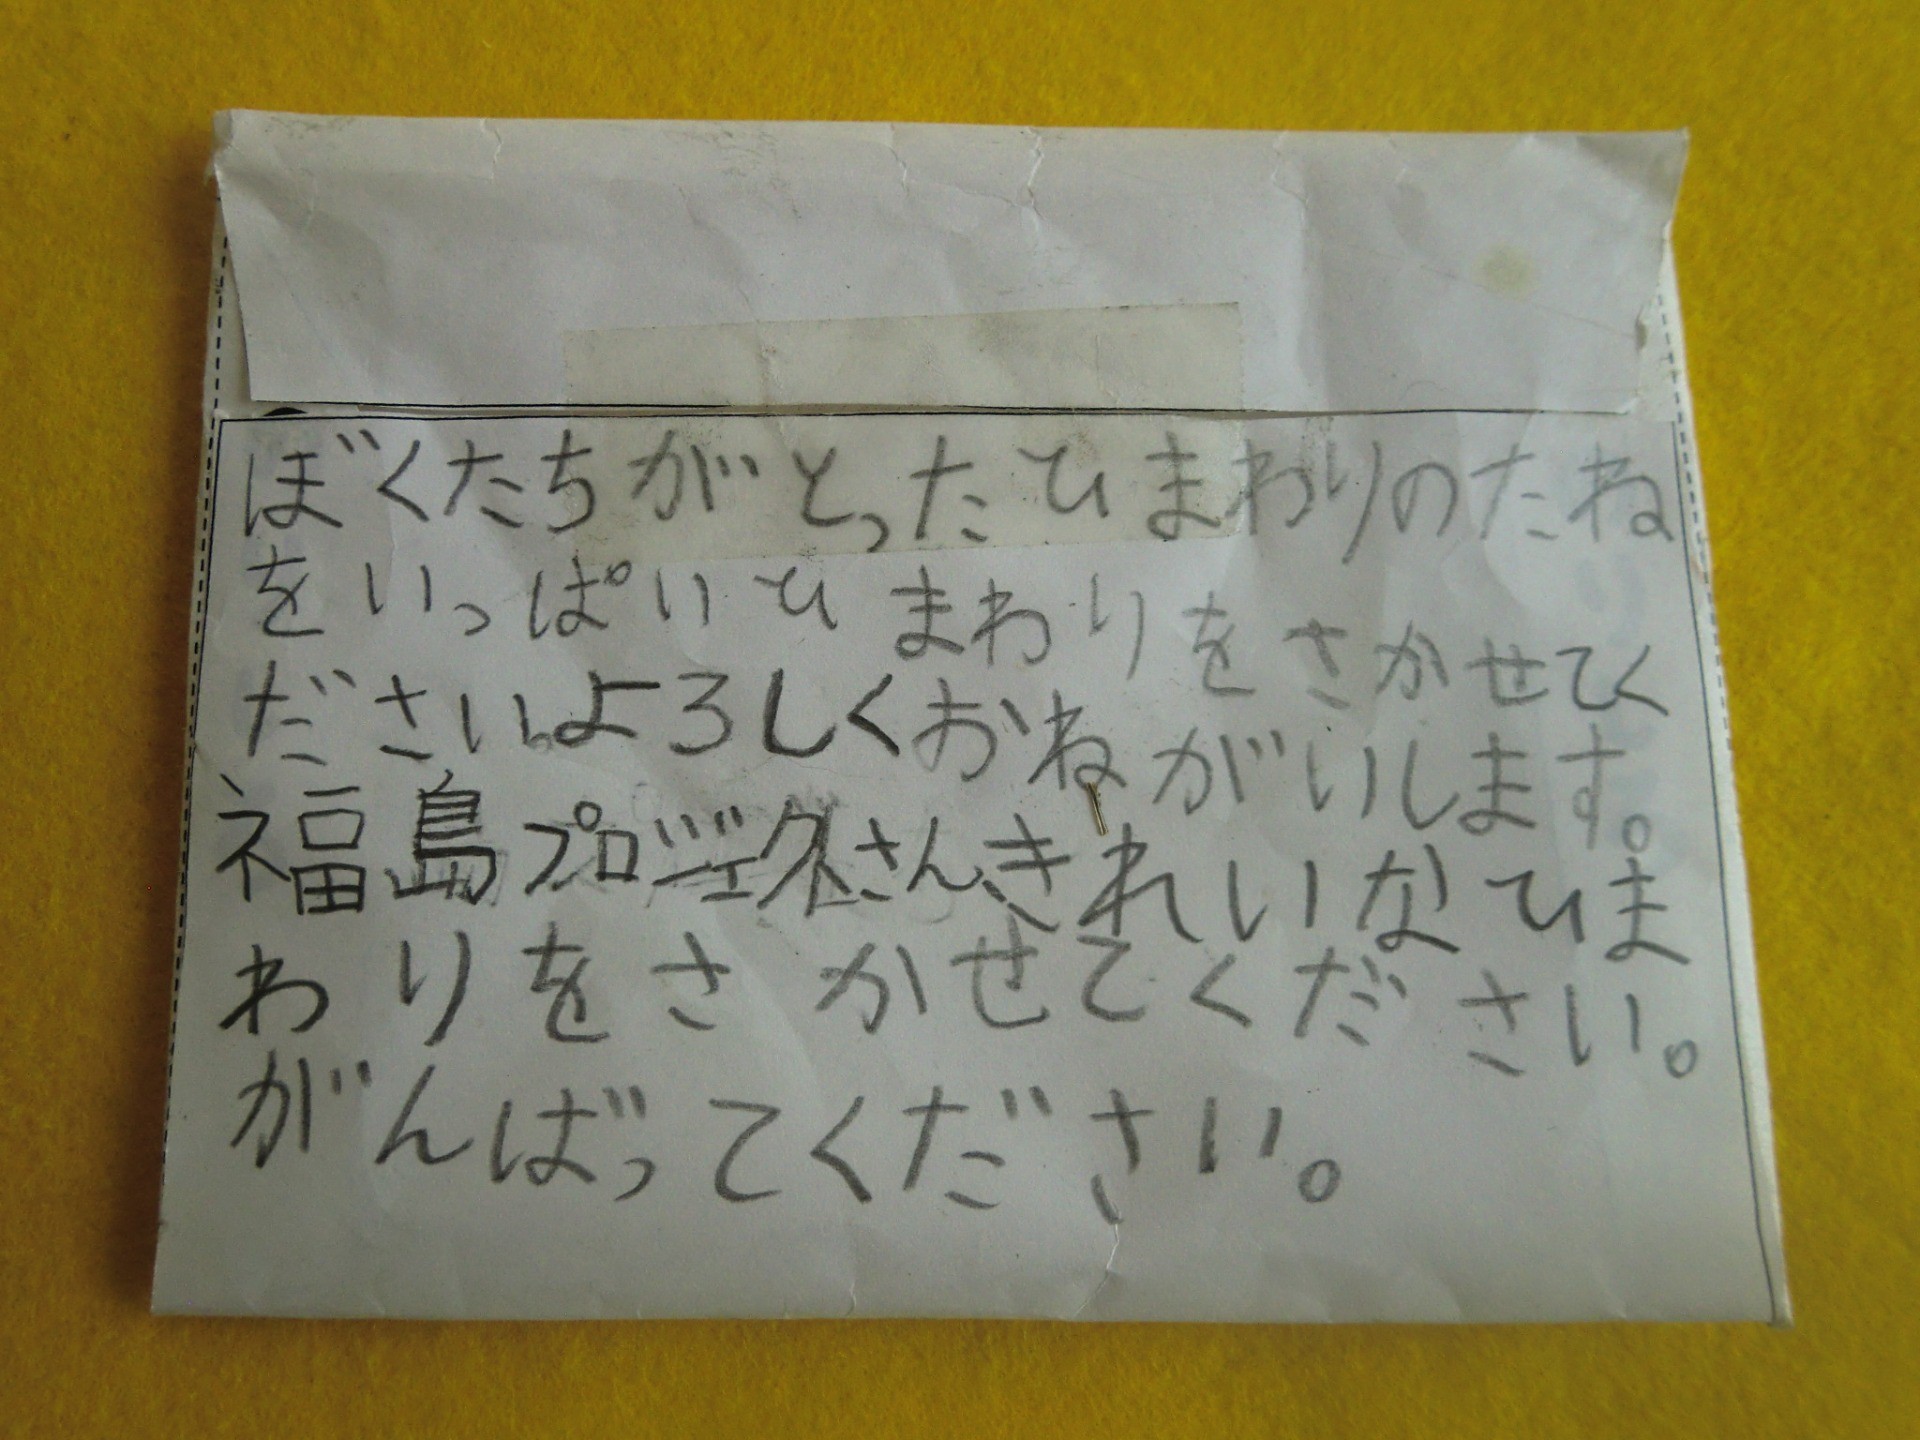 ぼくたちがとったひまわりのたね
をいっぱいひまわりをさかせてく
ださい。よろしくおねがいします。
福島プロジェクトさん、きれいなひま
わりをさかせてください。
がんばってください。